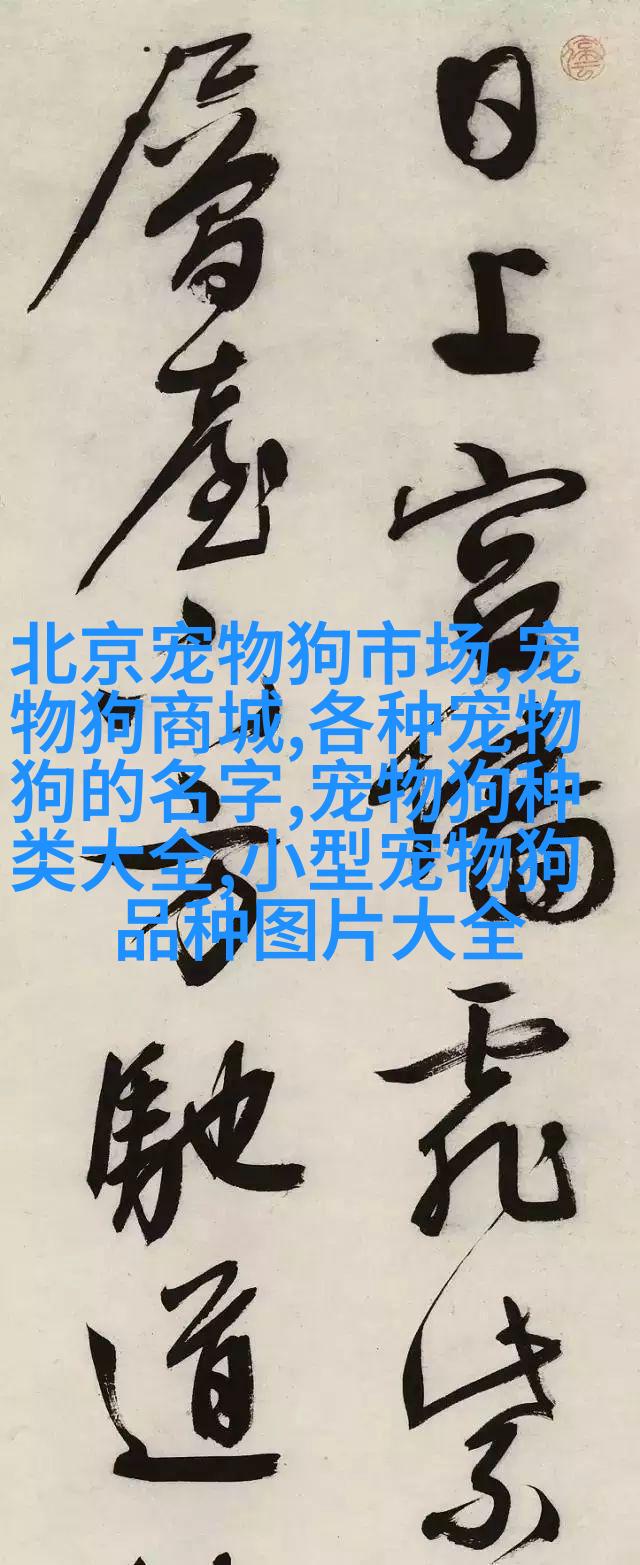 日上宫墉霏紫
層臺下方馳道
北京宠物狗市场,宠
物狗商城,各种宠物
狗的名字,宠物狗种
类大全,小型宠物狗
品种图片大全